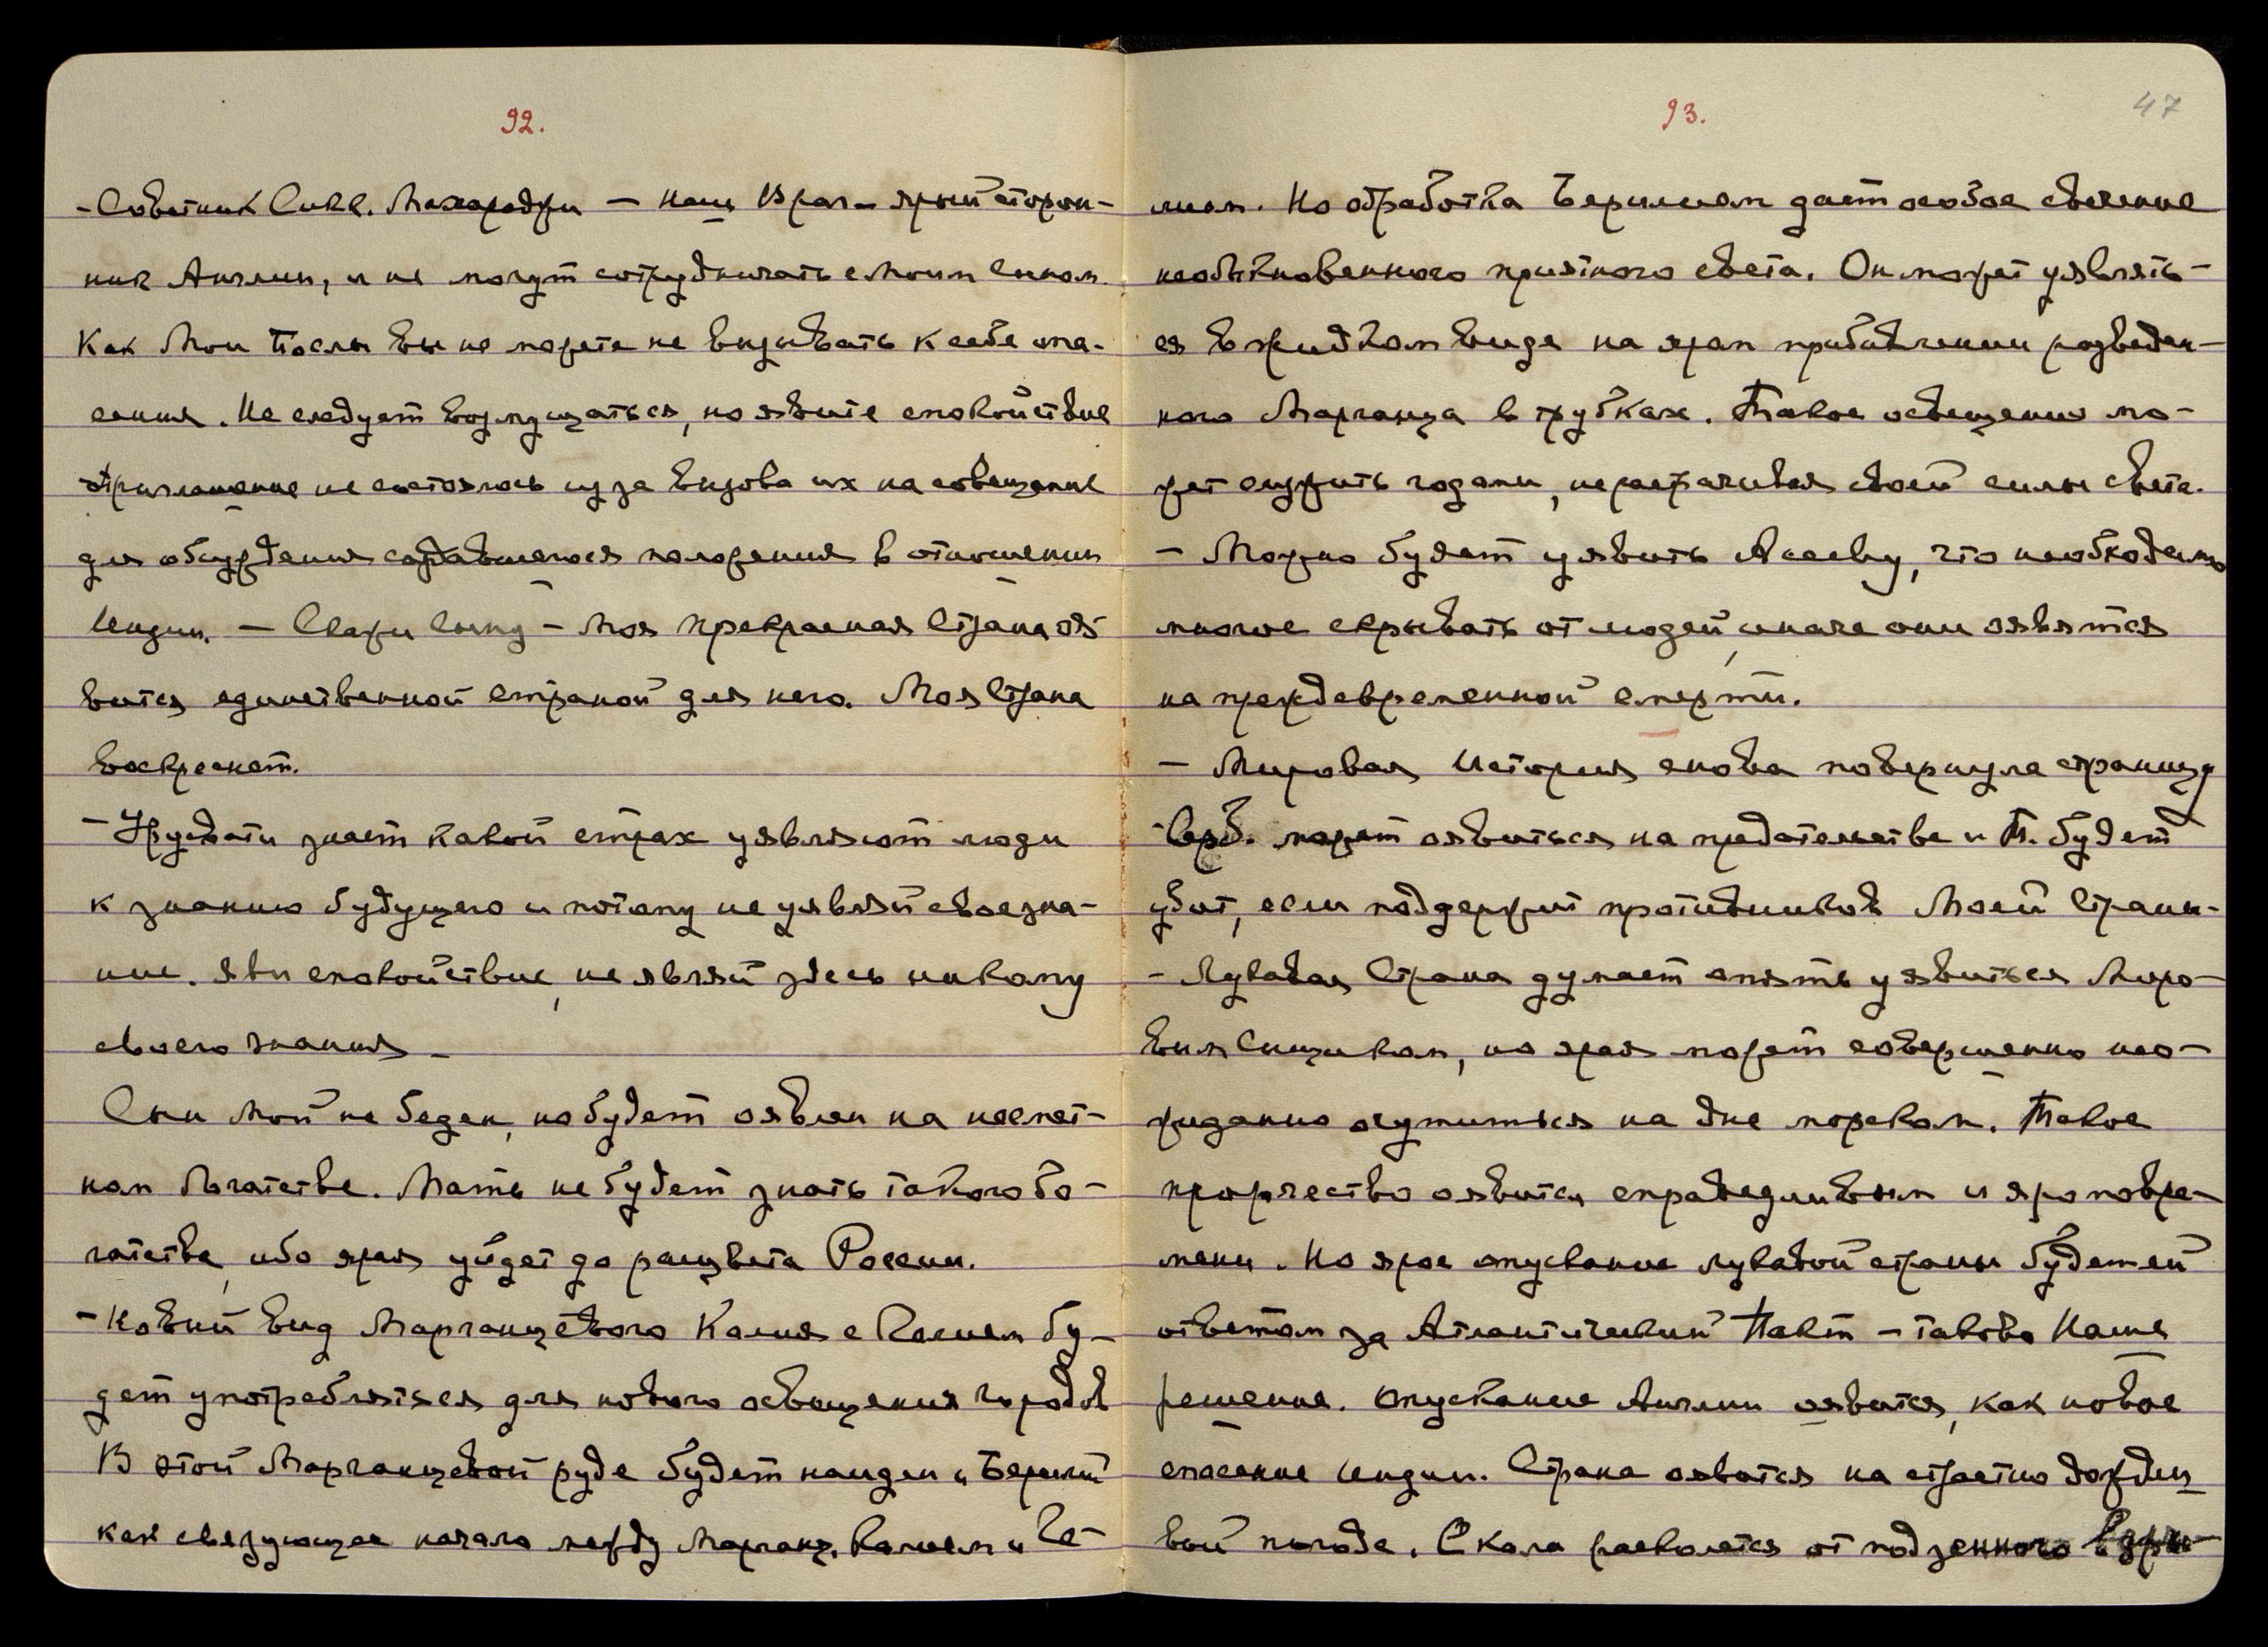 92.
- Советник Сикк. Махараджи — наш Враг - ярый сторон-
ник Англии, и не могут сотрудничать с Моим Сыном.
Как Мои Послы вы не можете не вызывать к себе опа-
сения. Не следует возмущаться, но явите спокойствие
Приглашение не состоялось из за вызова их на совещание
для обсуждения создавшегося положения в отношении
Индии. — Скажи Сыну — Моя Прекрасная Страна оя-
вится единственной страной для него. Моя Страна
воскреснет.
- Урусвати знает какой страх уявляют люди
к знанию будущего и потому не уявляй свое зна-
ние. Яви спокойствие, не являй здесь никому
своего знания —
Сын Мой не беден, но будет оявлен на несмет-
ном богатстве. Мать не будет знать такого бо-
гатства, ибо ярая уйдет до расцвета России.
- Новый вид Марганцевого Калия с Калием бу-
дет употребляться для нового освещения городов
В этой Марганцевой руде будет найден и Берилий
как связующее начало между Марганц. Калием и Ге-
93.
47
лием. Но обработка Берилием дает особое свечение
необыкновенного приятного света. Он может уявлять-
ся в жидком виде на яром прибавлении разведен-
ного Марганца в трубках. Такое освещение мо-
жет служить годами, не растрачивая своей силы света.
- Можно будет уявить Асееву, что необходимо
многое скрывать от людей, иначе они оявятся
на преждевременной смерти.
- Мировая История снова повернула страницу
Серб. может оявиться на предательстве и Т. будет
убит, если поддержит противников Моей Страны.
- Лукавая Страна думает опять уявиться Миро-
вым Сыщиком, но ярая может совершенно нео-
жиданно очутиться на дне морском. Такое
пророчество оявится справедливым и яро повре-
мени. Но ярое опускание лукавой страны будет ей
ответом за Атлантический Пакт — таково Наше
решение. Опускание Англии оявится, как новое
спасение Индии. Страна оявится на страстно дождли-
вой погоде. Скала расколется от подземного взры-